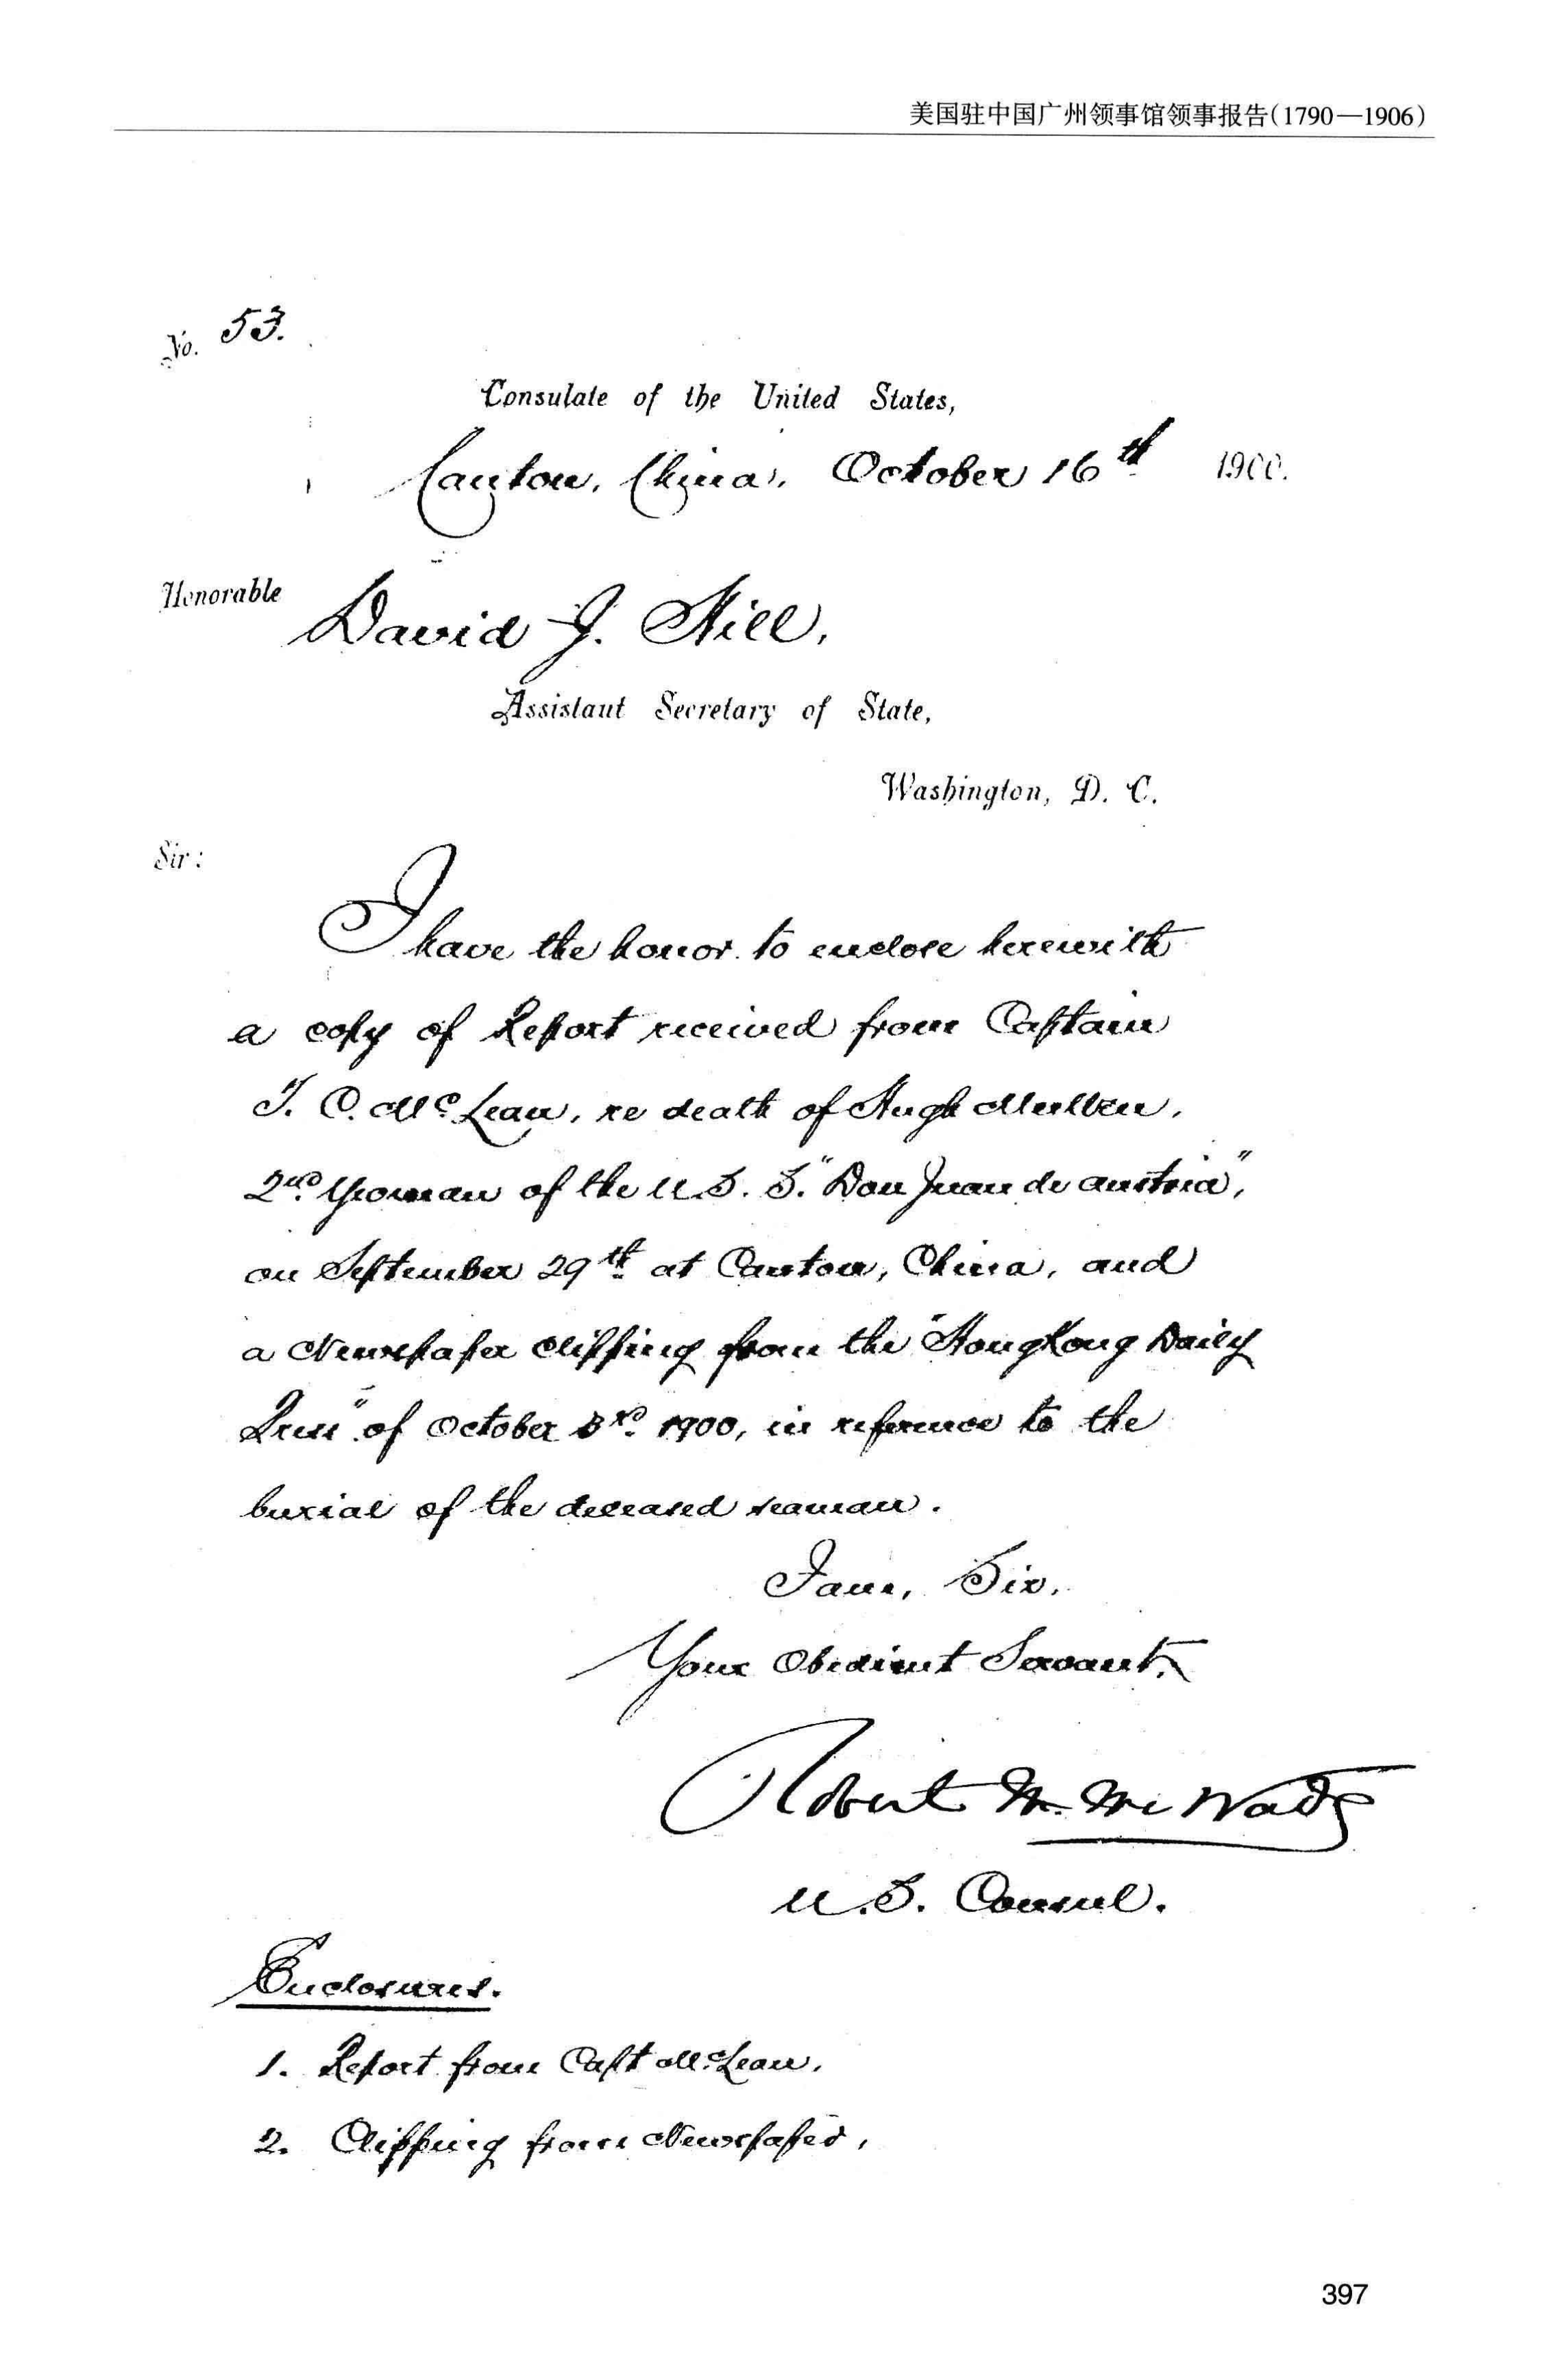 美国驻中国广州领事馆领事报告(1790—1906)
No. 53.
Consulate of the United States,
Canton, China, October 16th 1900.
Honorable
David J. Hill,
Assistant Secretary of State,
Washington, D. C.
Sir:
I have the honor to enclose herewith
a copy of Report received from Captain
T. C. McLean, re death of Hugh Mullen,
2nd Yeoman of the U. S. S. "Don Juan de Austria",
on September 29th at Canton, China, and
a Newspaper clipping from the "HongKong Daily
Press" of October 3rd 1900, in reference to the
burial of the deceased seaman.
I am, Sir,
Your Obedient Servant,
Robert M. McWade
U. S. Consul.
Enclosures.
1. Report from Capt McLean,
2. Clipping from Newspaper,
397